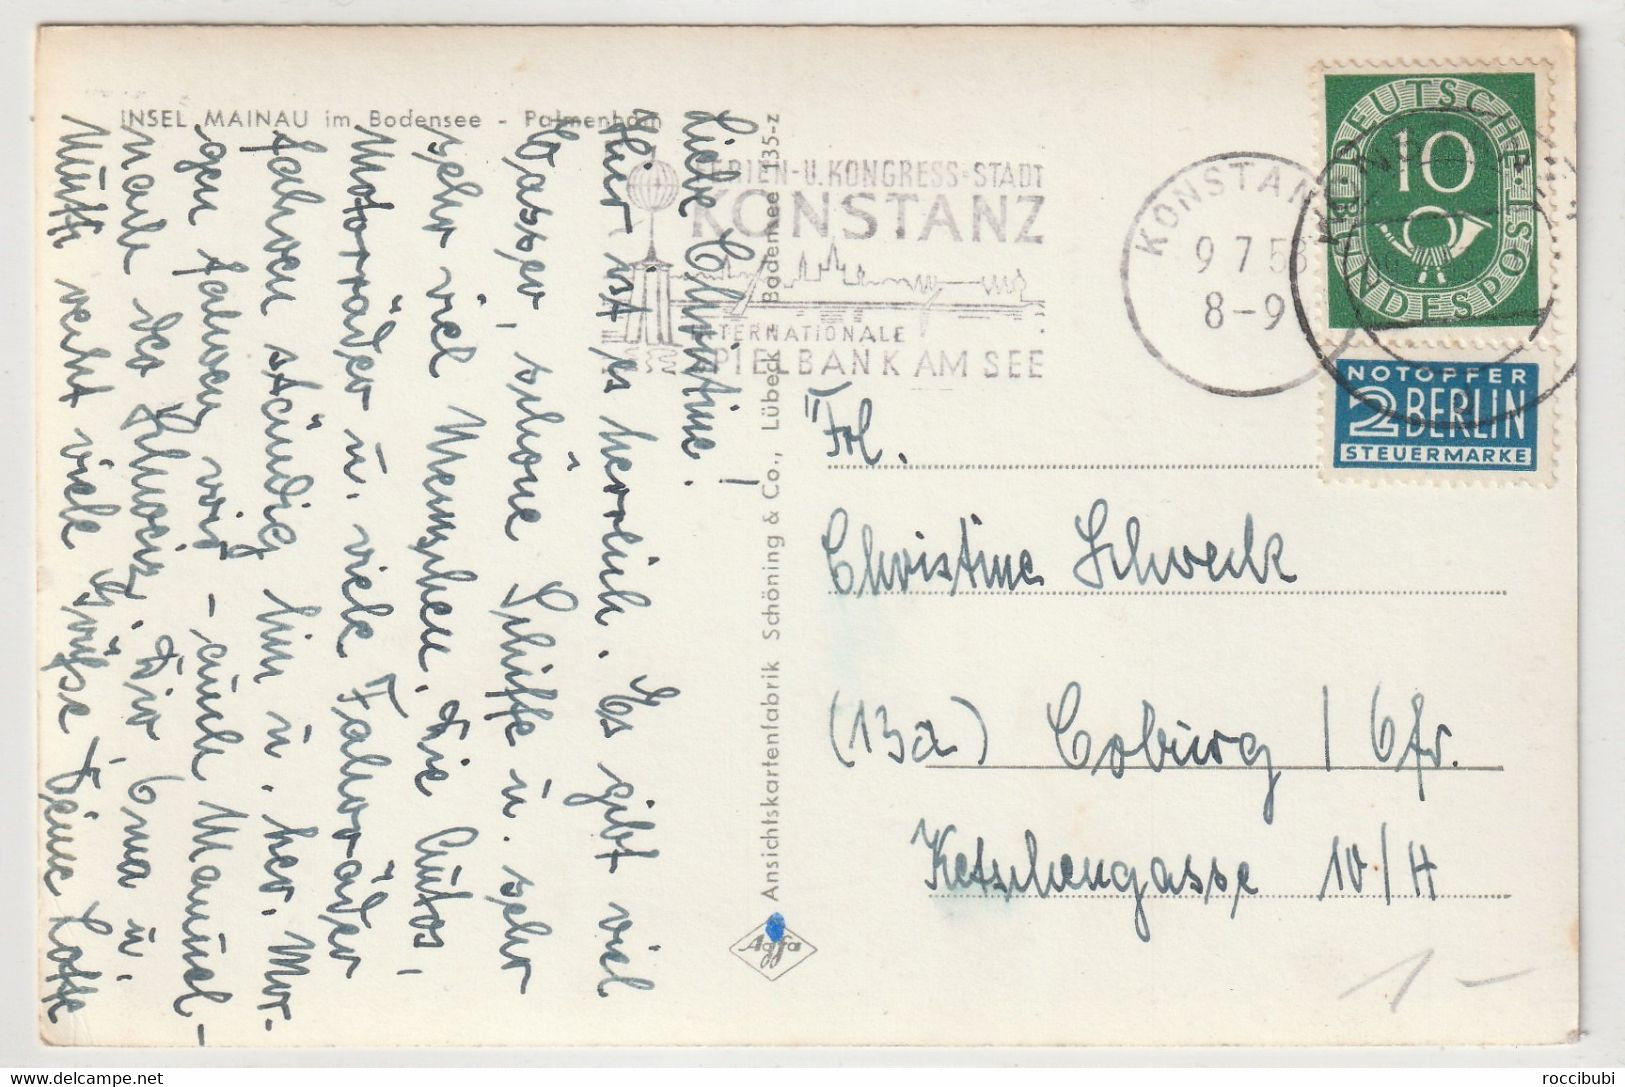 INSEL MAINAU im Bodensee - Palmenheim
Liebe Christine!
Hier ist es herrlich. Es gibt viel
Wasser, schöne Schiffe u. sehr
sehr viel Menschen. Die Autos,
Motorräder u. viele Fahrräder
fahren ständig hin u. her. Mor-
gen fahren wir - auch Manuel -
nach der Schweiz. Dir, Oma u.
Mutti recht viele Grüsse Deine Lotte
Ansichtskartenfabrik Schöning & Co., Lübeck
Bodensee 135-z
Agfa
FERIEN-U. KONGRESS-STADT
KONSTANZ
INTERNATIONALE
SPIELBANK AM SEE
KONSTANZ
9 7 53
8-9
DEUTSCHE BUNDESPOST
10
NOTOPFER
2 BERLIN
STEUERMARKE
Frl.
Christine Schweck
(13a) Coburg / Ofr.
Ketschengasse 10/II
1-
roccibubi